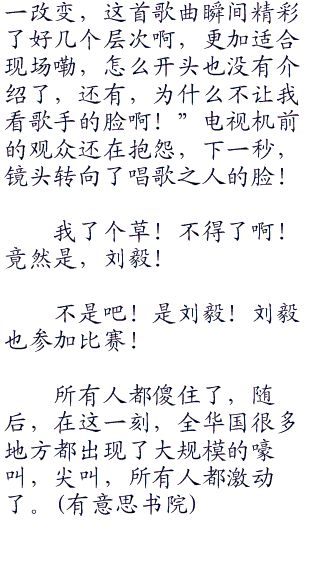 一改变，这首歌曲瞬间精彩
了好几个层次啊，更加适合
现场嘞，怎么开头也没有介
绍了，还有，为什么不让我
看歌手的脸啊！”电视机前
的观众还在抱怨，下一秒，
镜头转向了唱歌之人的脸！
我了个草！不得了啊！
竟然是，刘毅！
不是吧！是刘毅！刘毅
也参加比赛！
所有人都傻住了，随
后，在这一刻，全华国很多
地方都出现了大规模的嚎
叫，尖叫，所有人都激动
了。(有意思书院)